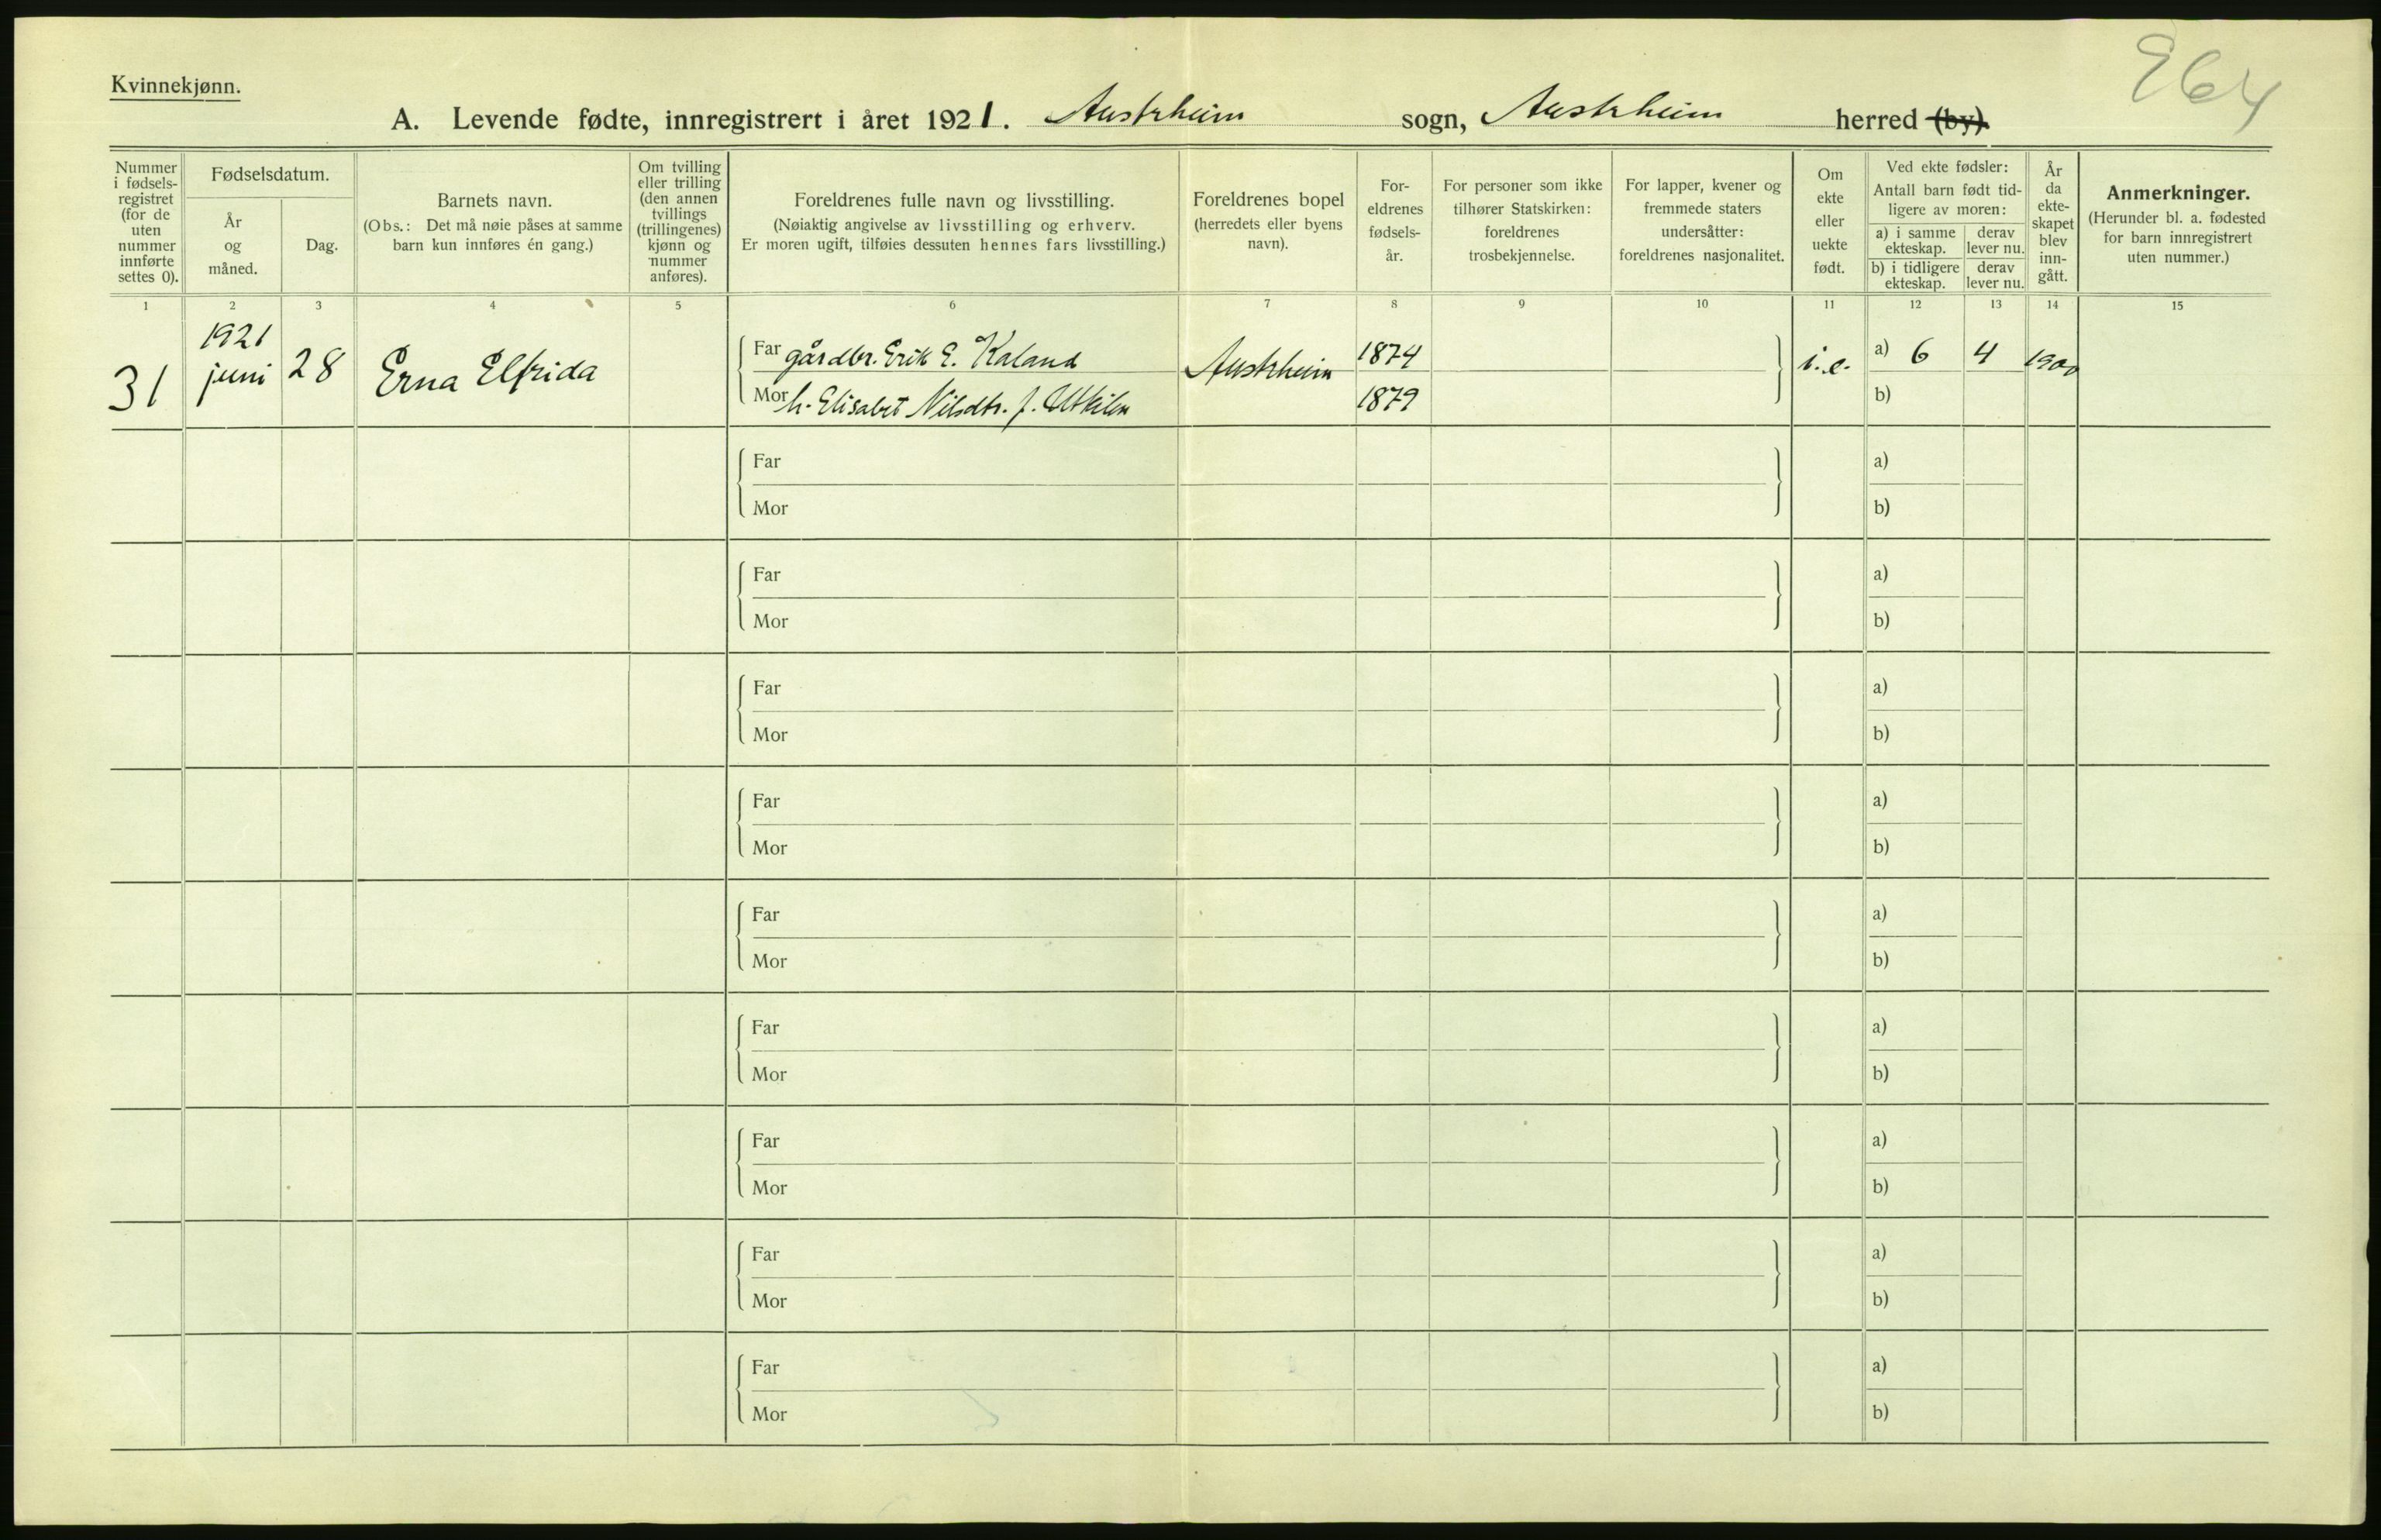 Kvinnekjønn.
E64
A. Levende fødte, innregistrert i året 1921. Austrheim sogn, Austrheim herred (by).
Nummer
i fødsels-
registret
(for de
uten
nummer
innførte
settes 0).
Fødselsdatum.
År
og
måned.
Dag.
Barnets navn.
(Obs.: Det må nøie påses at samme
barn kun innføres én gang.)
Om tvilling
eller trilling
(den annen
tvillings
(trillingenes)
kjønn og
nummer
anføres).
Foreldrenes fulle navn og livsstilling.
(Nøiaktig angivelse av livsstilling og erhverv.
Er moren ugift, tilføies dessuten hennes fars livsstilling.)
Foreldrenes bopel
(herredets eller byens
navn).
For-
eldrenes
fødsels-
år.
For personer som ikke
tilhører Statskirken:
foreldrenes
trosbekjennelse.
For lapper, kvener og
fremmede staters
undersåtter:
foreldrenes nasjonalitet.
Om
ekte
eller
uekte
født.
Ved ekte fødsler:
Antall barn født tid-
ligere av moren:
a) i samme
ekteskap.
derav
lever nu.
b) i tidligere
ekteskap.
derav
lever nu.
År
da
ekte-
skapet
blev
inn-
gått.
Anmerkninger.
(Herunder bl. a. fødested
for barn innregistrert
uten nummer.)
1 2 3 4 5 6 7 8 9 10 11 12 13 14 15
31
1921
juni
28
Erna Elfrida
Far gårdbr. Erik E. Kaland
Mor h. Elisabet Nilsdtr. f. Utkilen
Austrheim
1874
1879
i.e.
a) 6 4
b)
1900
Far a)
Mor b)
Far a)
Mor b)
Far a)
Mor b)
Far a)
Mor b)
Far a)
Mor b)
Far a)
Mor b)
Far a)
Mor b)
Far a)
Mor b)
Far a)
Mor b)